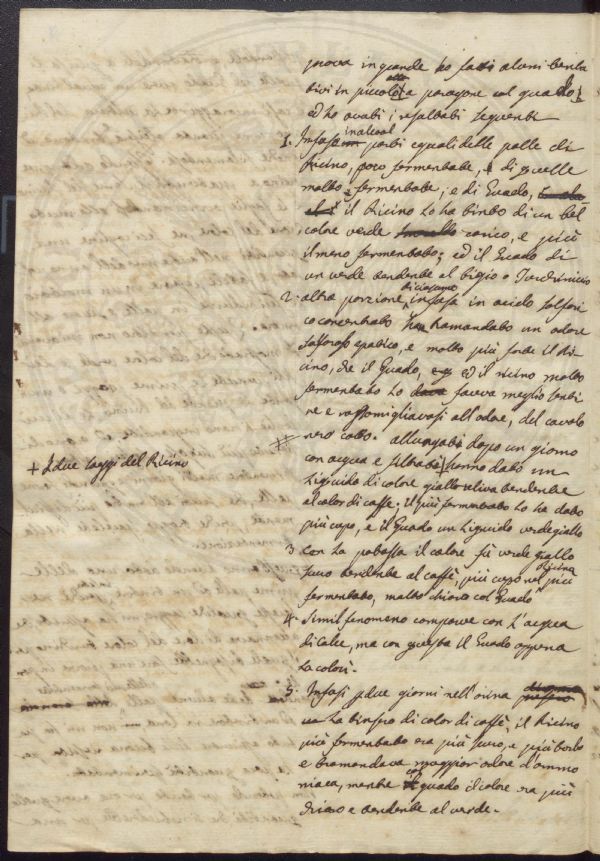 prova in grande ho fatti alcuni tenta
tivi in piccolo a paragone col guado;
ed ho avuti i resultati seguenti
1. Infusi in alcool parti eguali delle palle di
Ricino, poco fermentate, e di quelle
molto fermentate; e di Guado,
il Ricino lo ha tinto di un bel
colore verde carico, e più
il meno fermentato; ed il Guado di
un verde tendente al bigio o
2. altra porzione, infusa in acido solfori
co concentrato ha tramandato un odore
solforoso epatico, e molto più forte il Ri
cino, che il Guado, ed il ricino molto
fermentato lo faceva meglio senti
re e rassomigliavasi all'odore, del cavolo
nero cotto. allungati dopo un giorno
con acqua e filtrati + hanno dato un
+ I due saggi del Ricino
Liquido di colore giallo oliva tendente
al color di caffe; il più fermentato lo ha dato
più cupo, e il Guado un Liquido verde giallo
3 Con la potassa il colore fù verde giallo
scuro tendente al caffè, più cupo nel ricino più
fermentato, molto chiaro col Guado
4. Simil fenomeno comparve con l'acqua
di calce, ma con questa il Guado appena
la colorì.
5. Infusi per due giorni nell'orina
la tinsero di color di caffè, il Ricino
più fermentato era più scuro, e più torbo
e tramandava maggior odore d'ammo
niaca, mentre col guado il colore era più
chiaro e tendente al verde.